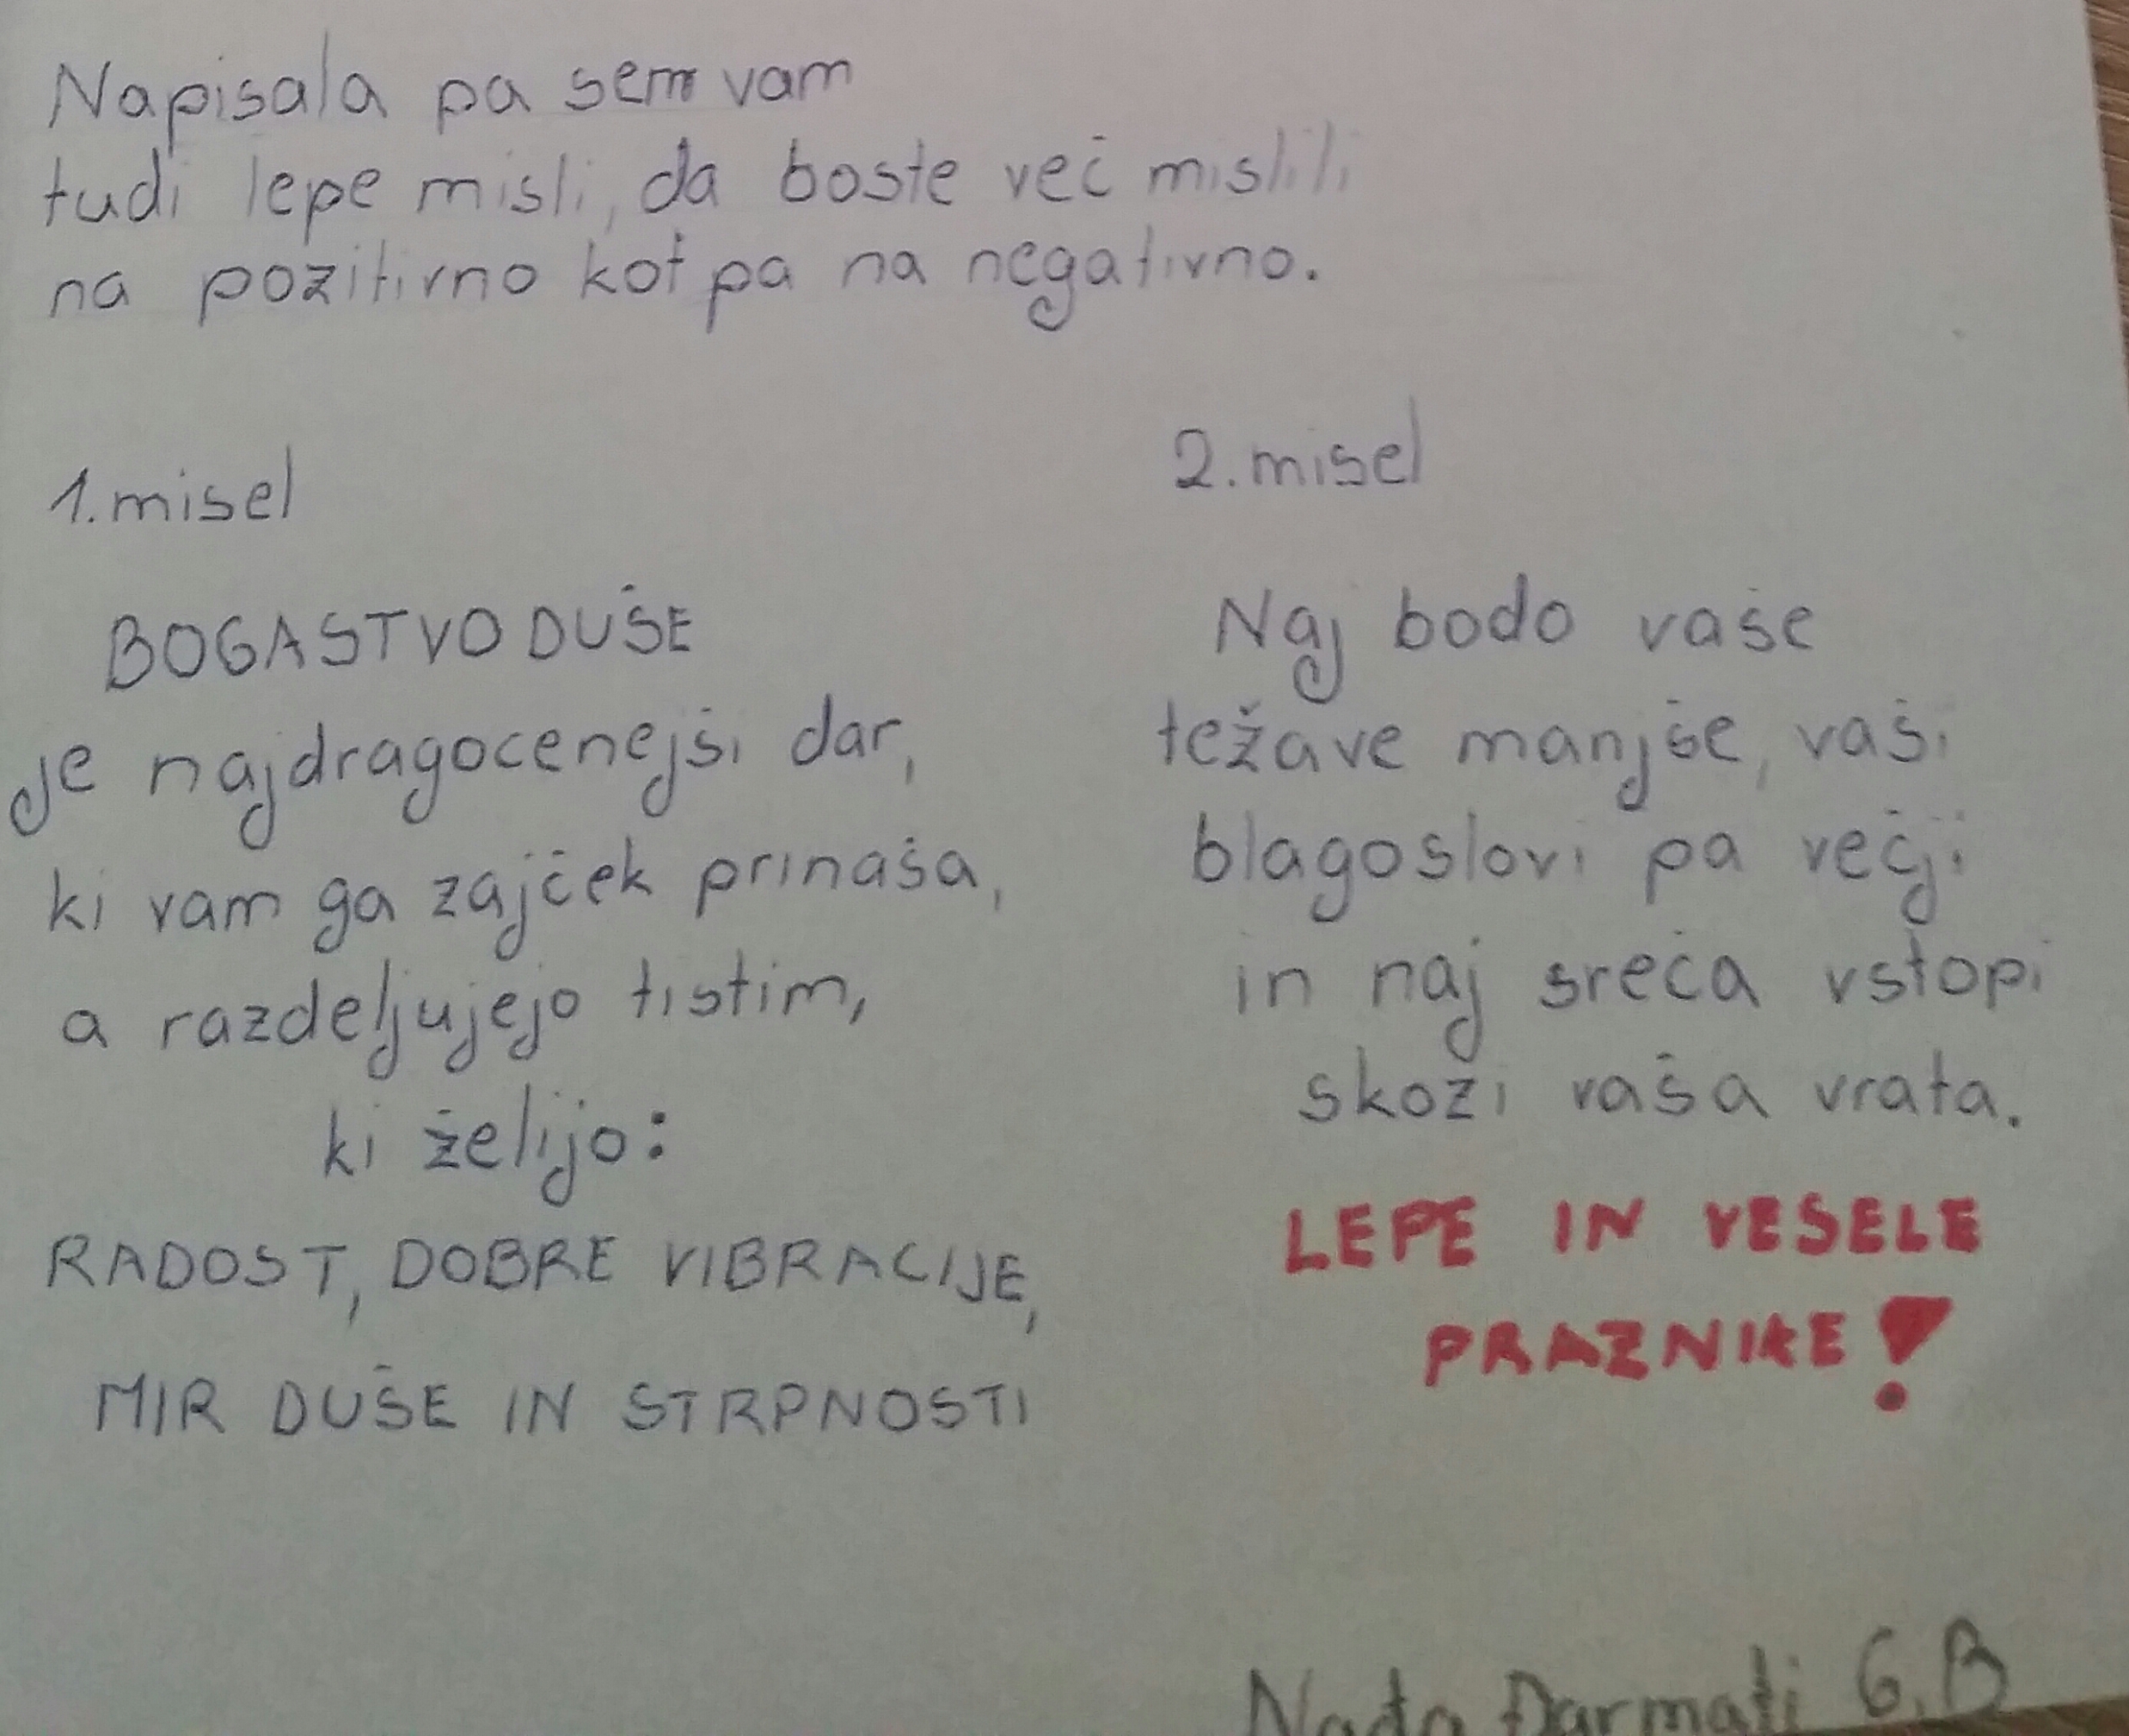 Napisala pa sem vam
tudi lepe misli, da boste več mislili
na pozitivno kot pa na negativno.
1. misel
BOGASTVO DUŠE
je najdragocenejši dar,
ki vam ga zajček prinaša,
a razdeljujejo tistim,
ki želijo:
RADOST, DOBRE VIBRACIJE,
MIR DUŠE IN STRPNOSTI
2. misel
Naj bodo vaše
težave manjše, vaši
blagoslovi pa večji
in naj sreča vstopi
skozi vaša vrata.
LEPE IN VESELE
PRAZNIKE!
Nada Đarmati 6.B